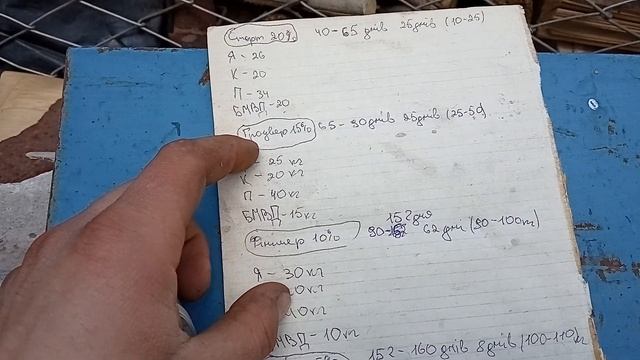 Старт 20% 40-65 днів 25 днів (10-25)
Я - 26
К - 20
П - 34
БМВД - 20
Гроувер 15% 65-90 днів 25 днів (25-50)
25 кг
К - 20 кг
П - 40 кг
БМВД - 15 кг
152 дня
Фінишер 10% 90- 62 дні (50-100кг)
Я - 30 кг
0 кг
0 кг
БМВД - 10 кг
5% 152 - 160 днів 8 днів (100-110) кг